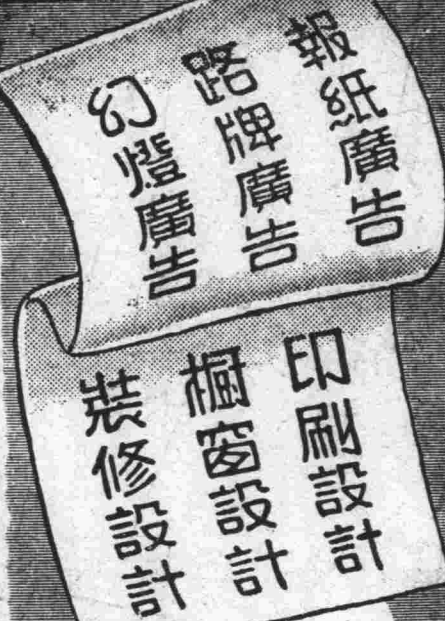 報紙廣告
路牌廣告
幻燈廣告
印刷設計
櫥窗設計
裝修設計